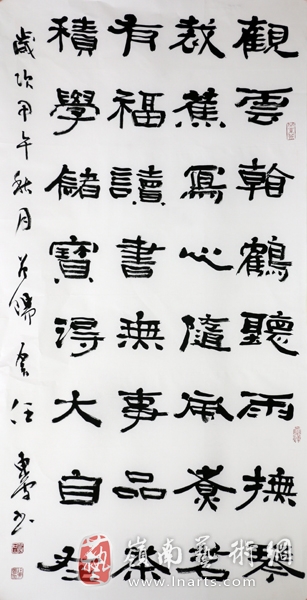 觀雲翰鶴聽雨撫琴
蕉寫心隨煮
有福讀書無事品茶
積學儲寶得大自在
歲次甲午秋月
嶺南藝術網
www.lnarts.com